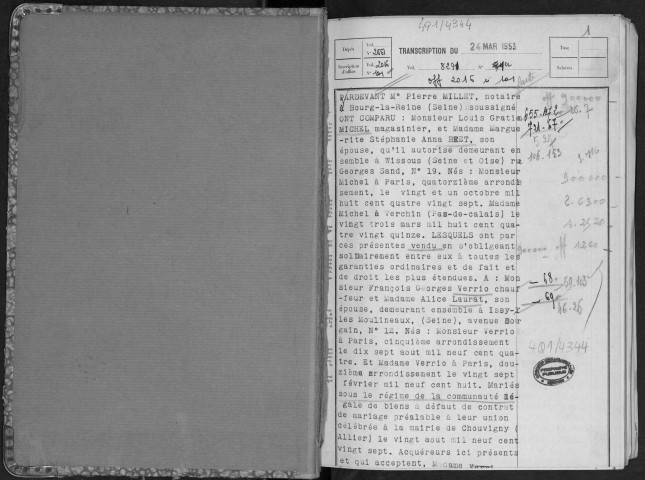 4Q1/4344
1
Dépôt Vol. N° 2651
Inscription d'office Vol. 2016 N° 101
TRANSCRIPTION DU 24 MAR 1953
Vol. 8291 N°
off 2016 n° 101
Taxe :
Salaires :
PARDEVANT M° Pierre MILLET, notaire
à Bourg-la-Reine (Seine) soussigné
ONT COMPARU : Monsieur Louis Gratien
MICHEL magasinier, et Madame Margue
-rite Stéphanie Anna BEST, son
épouse, qu'il autorise demeurant en
semble à Wissous (Seine et Oise) ru
Georges Sand, N° 19. Nés : Monsieur
Michel à Paris, quatorzième arrondi
sement, le vingt et un octobre mil
huit cent quatre vingt sept. Madame
Michel à Verchin (Pas-de-calais) le
vingt trois mars mil huit cent qua
tre vingt quinze. LESQUELS ont par
ces présentes vendu en s'obligeant
solidairement entre eux à toutes les
garanties ordinaires et de fait et
de droit les plus étendues. A : Mon
sieur François Georges Verrio chauf
-feur et Madame Alice Laurat, son
épouse, demeurant ensemble à Issy-l
les Moulineaux, (Seine), avenue Bour
gain, N° 12. Nés : Monsieur Verrio
à Paris, cinquième arrondissement
le dix sept aout mil neuf cent qua-
tre. Et Madame Verrio à Paris, dou-
zième arrondissement le vingt sept
février mil neuf cent huit. Mariés
sous le régime de la communauté lé-
gale de biens à défaut de contrat
de mariage préalable à leur union
célébrée à la mairie de Chouvigny (
Allier) le vingt aout mil neuf cent
vingt sept. Acquéreurs ici présents
et qui acceptent, Madame
off 900000
900000
1260
68
69
4Q1/4344